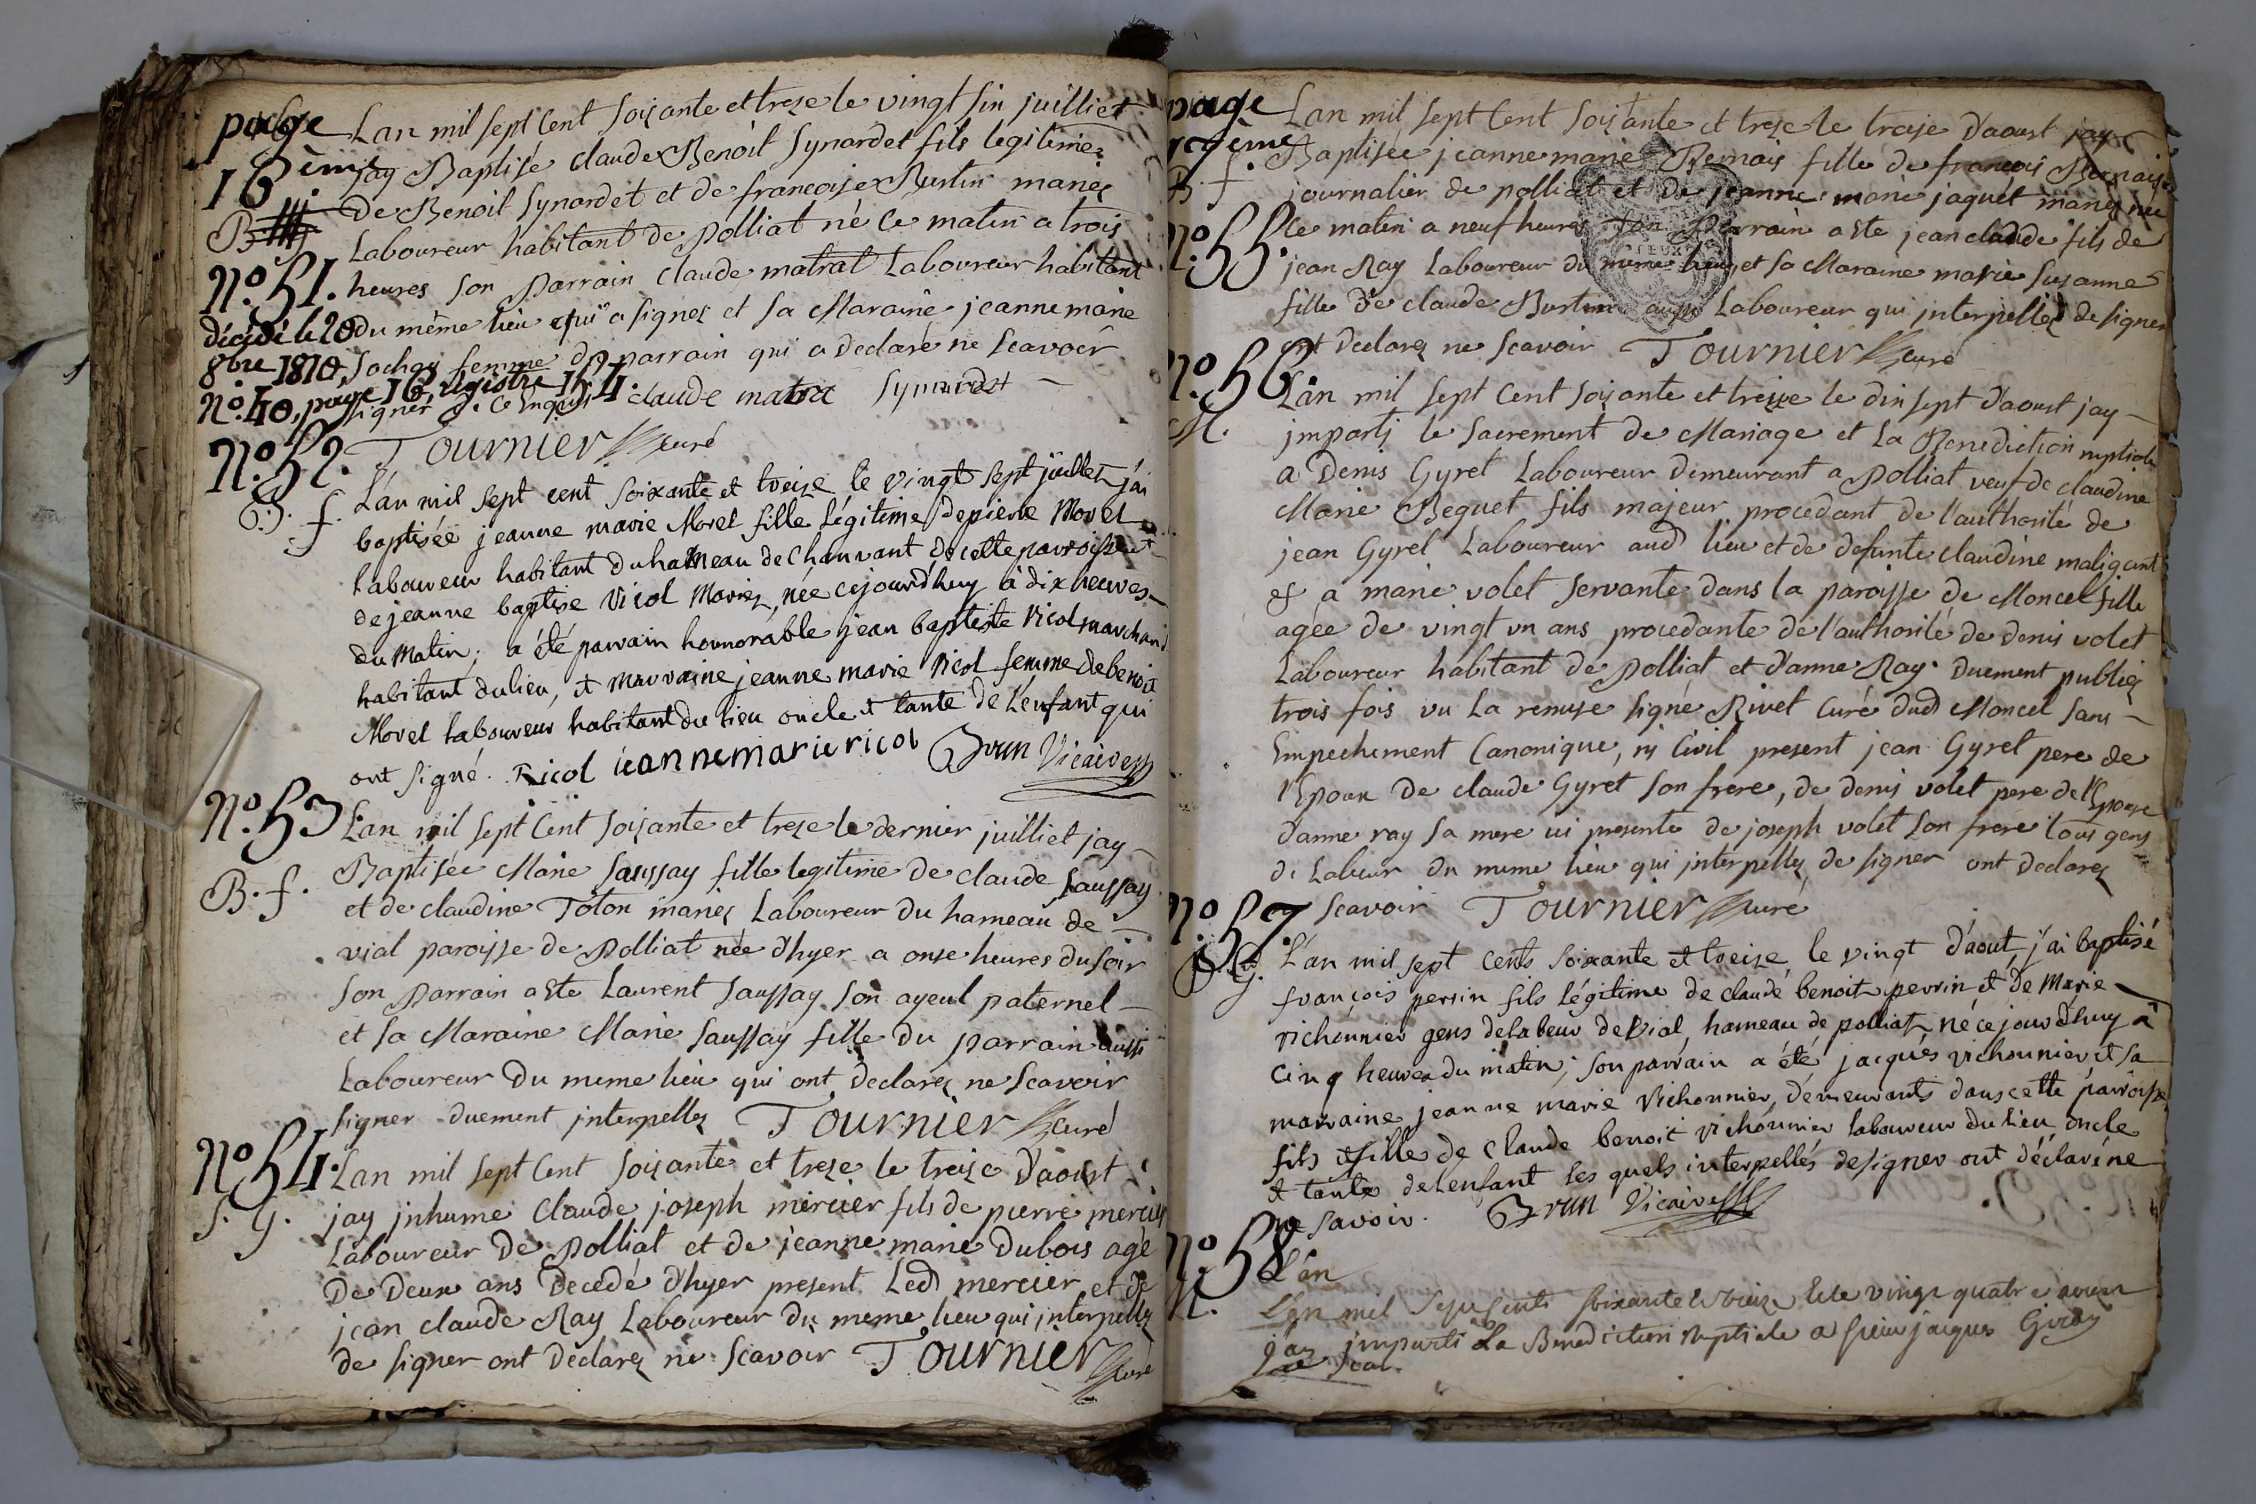 page
16ème
B. g
Lan mil sept Cent Soixante et treze le vingt sin juilliet
jay Baptisé claude Benoit Synardet fils legitime
de Benoit Synardet et de francoise Burtin mariez
Laboureur habitant de Polliat né ce matin a trois
N.o 51.
heures son Parrain claude matrat Laboureur habitant
décédé le 20
du même lieu qui a signez et sa Maraine jeanne marie
8bre 1810,
Sochay femme du parrain qui a declaré ne Scavoir
N.o 40, page 16 registre 154.
signer de ce Enquis claude matra Synardet
N.o 52.
Tournier curé
B. f.
L'an mil sept cent soixante et treize le vingt sept juillet j'ai
baptisée jeanne marie Morel fille légitime de pierre Morel
laboureur habitant du hameau de Chanvant de cette parroisse et
de jeanne baptise Vicol Mariez, née cejourd'huy à dix heures
du matin; a été parrain honnorable jean baptiste Ricol marchand
habitant du lieu, et marraine jeanne marie Ricol femme de benoit
Morel laboureur habitant du lieu oncle et tante de L'enfant qui
ont signé. Ricol jeanne marie ricol Brun Vicaire
N.o 53
Lan mil sept Cent soixante et treze le dernier juilliet jay
B. f.
Baptisée Marie Saussay fille legitime de claude Saussay
et de claudine Toton mariez Laboureur du hameau de
vial paroisse de Polliat née d'hyer a onze heures du soir
son Parrain a Ete Laurent Saussay son ayeul paternel
et sa Maraine Marie Saussay fille du parrain aussi
Laboureur du meme lieu qui ont declarez ne Scavoir
signer duement interpellez Tournier curé
N.o 54.
Lan mil sept Cent soixante et treze le treize d'aoust
S. g.
jay inhumé Claude joseph mercier fils de pierre mercier
Laboureur de Polliat et de jeanne marie Dubois agé
De Deux ans Decedé d'hyer present Led mercier et de
jean claude Ray Laboureur du meme lieu qui interpellez
de signer ont declarez ne Scavoir Tournier curé
page
17ème
B. f.
Lan mil sept Cent soixante et treze le treize d'aoust jay
Baptisée jeanne marie Bernais fille de francois Bernais
journalier de polliat et de jeanne marie jaquet mariez née
N.o 55.
le matin a neuf heures son Parrain a Ete jean claude fils de
jean Ray Laboureur du même lieu et sa Maraine marie Suzanne
fille de claude Burtin aussi Laboureur qui interpellez de signer
ont declarez ne Scavoir Tournier curé
N.o 56.
M.
Lan mil sept Cent soixante et treize le dix sept d'aoust jay
imparti le sacrement de Mariage et La Benediction nuptiale
a Denis Gyret Laboureur demeurant a Polliat veuf de claudine
Marie Beguet fils majeur procedant de l'authorité de
jean Gyret Laboureur aud lieu et de defunte claudine maligant
& a marie volet servante dans la paroisse de Moncel fille
agée de vingt un ans procedante de l'authorité de denis volet
Laboureur habitant de Polliat et d'anne Ray. Duement publiez
trois fois vu La remise signé Rivet Curé dud Moncel sans
Empechement Canonique, ny Civil present jean Gyret pere de
l'Epoux de claude Gyret son frere, de denis volet pere de l'Epouse
d'anne ray sa mere ici presente de joseph volet son frere tous gens
de Labeur du meme lieu qui interpellez de signer ont declarez
Scavoir Tournier curé
N.o 57.
B. G.
L'an mil sept cents soixante et treize, le vingt d'aout, j'ai baptisé
françois perrin fils légitime de claude benoit perrin et de Marie
vichonnier gens de labeur de Vial, hameau de polliat, né ce jourd'huy à
cinq heures du matin; son parrain a été jacques vichonnier et sa
marraine jeanne marie Vichonnier, demeurants dans cette parroisse,
fils et fille de claude benoit vichonnier laboureur du lieu, oncle
et tante de L'enfant les quels interpellés de signer ont déclaré ne
savoir. Brun Vicaire
N.o 58
M.
L'an
L'an mil sept cents soixante et treize le vingt quatre aoust
j'ay imparti La Benediction Nuptiale a sieur jacques